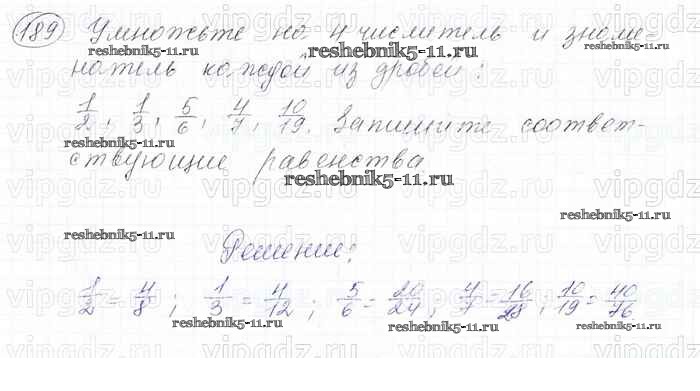 189 Умножьте на 4 числитель и знаме-
натель каждой из дробей:
1/2, 1/3, 5/6, 4/7, 10/19. Запишите соответ-
ствующие равенства
Решение:
1/2 = 4/8; 1/3 = 4/12; 5/6 = 20/24; 4/7 = 16/28; 10/19 = 40/76
reshebnik5-11.ru
reshebnik5-11.ru
reshebnik5-11.ru
reshebnik5-11.ru
reshebnik5-11.ru
reshebnik5-11.ru
reshebnik5-11.ru
reshebnik5-11.ru
reshebnik5-11.ru
reshebnik5-11.ru
vipgdz.ru